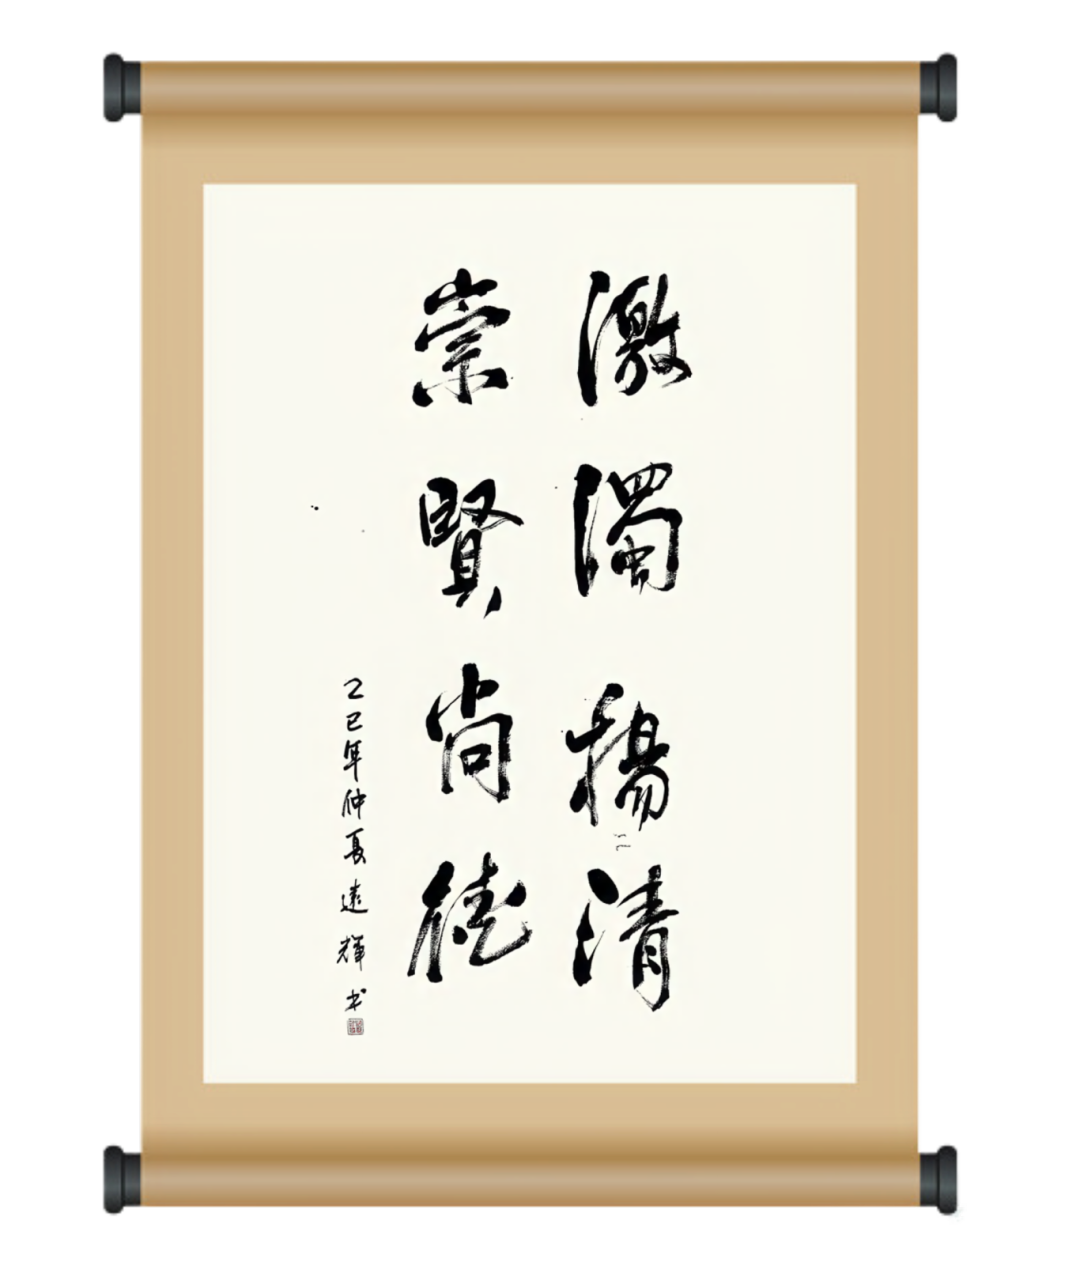 激濁揚清
崇賢尚德
乙巳年仲夏遠輝书